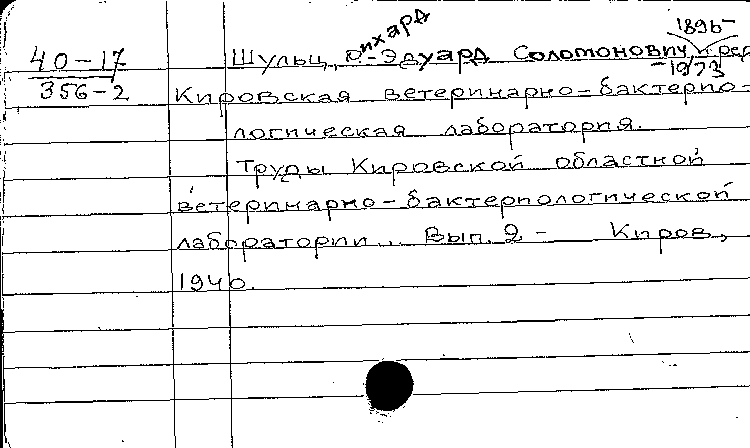 ихард
1896-
40-17 Шульц, Р.-Эдуард Соломонович, ред
-1973
356-2 Кировская ветеринарно-бактерио-
логическая лаборатория.
Труды Кировской областной
ветеринарно-бактериологической
лаборатории... Вып. 2 - Киров,
1940.